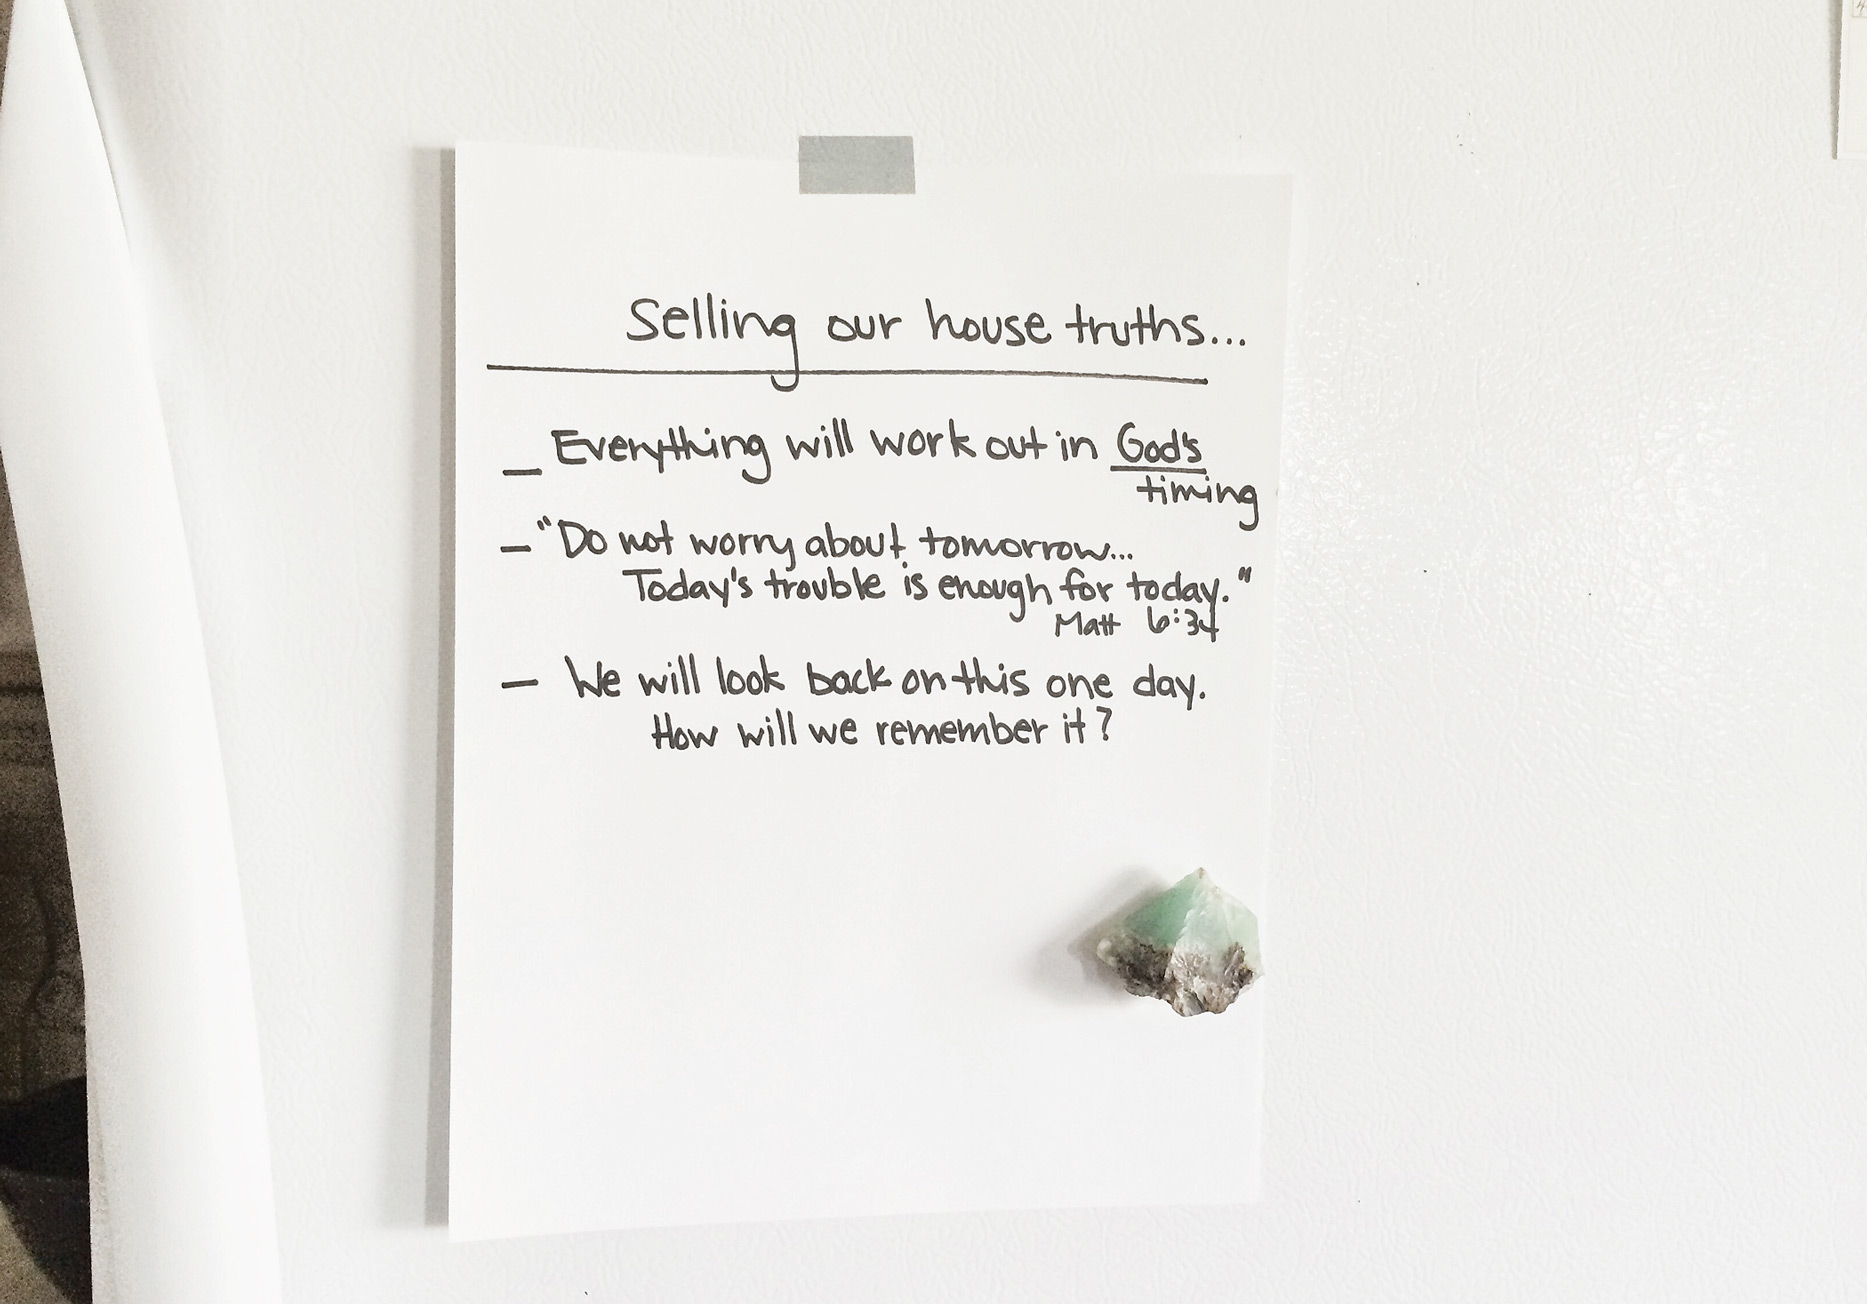 Selling our house truths...
_ Everything will work out in God's
timing
- "Do not worry about tomorrow...
Today's trouble is enough for today."
Matt 6:34
- We will look back on this one day.
How will we remember it?